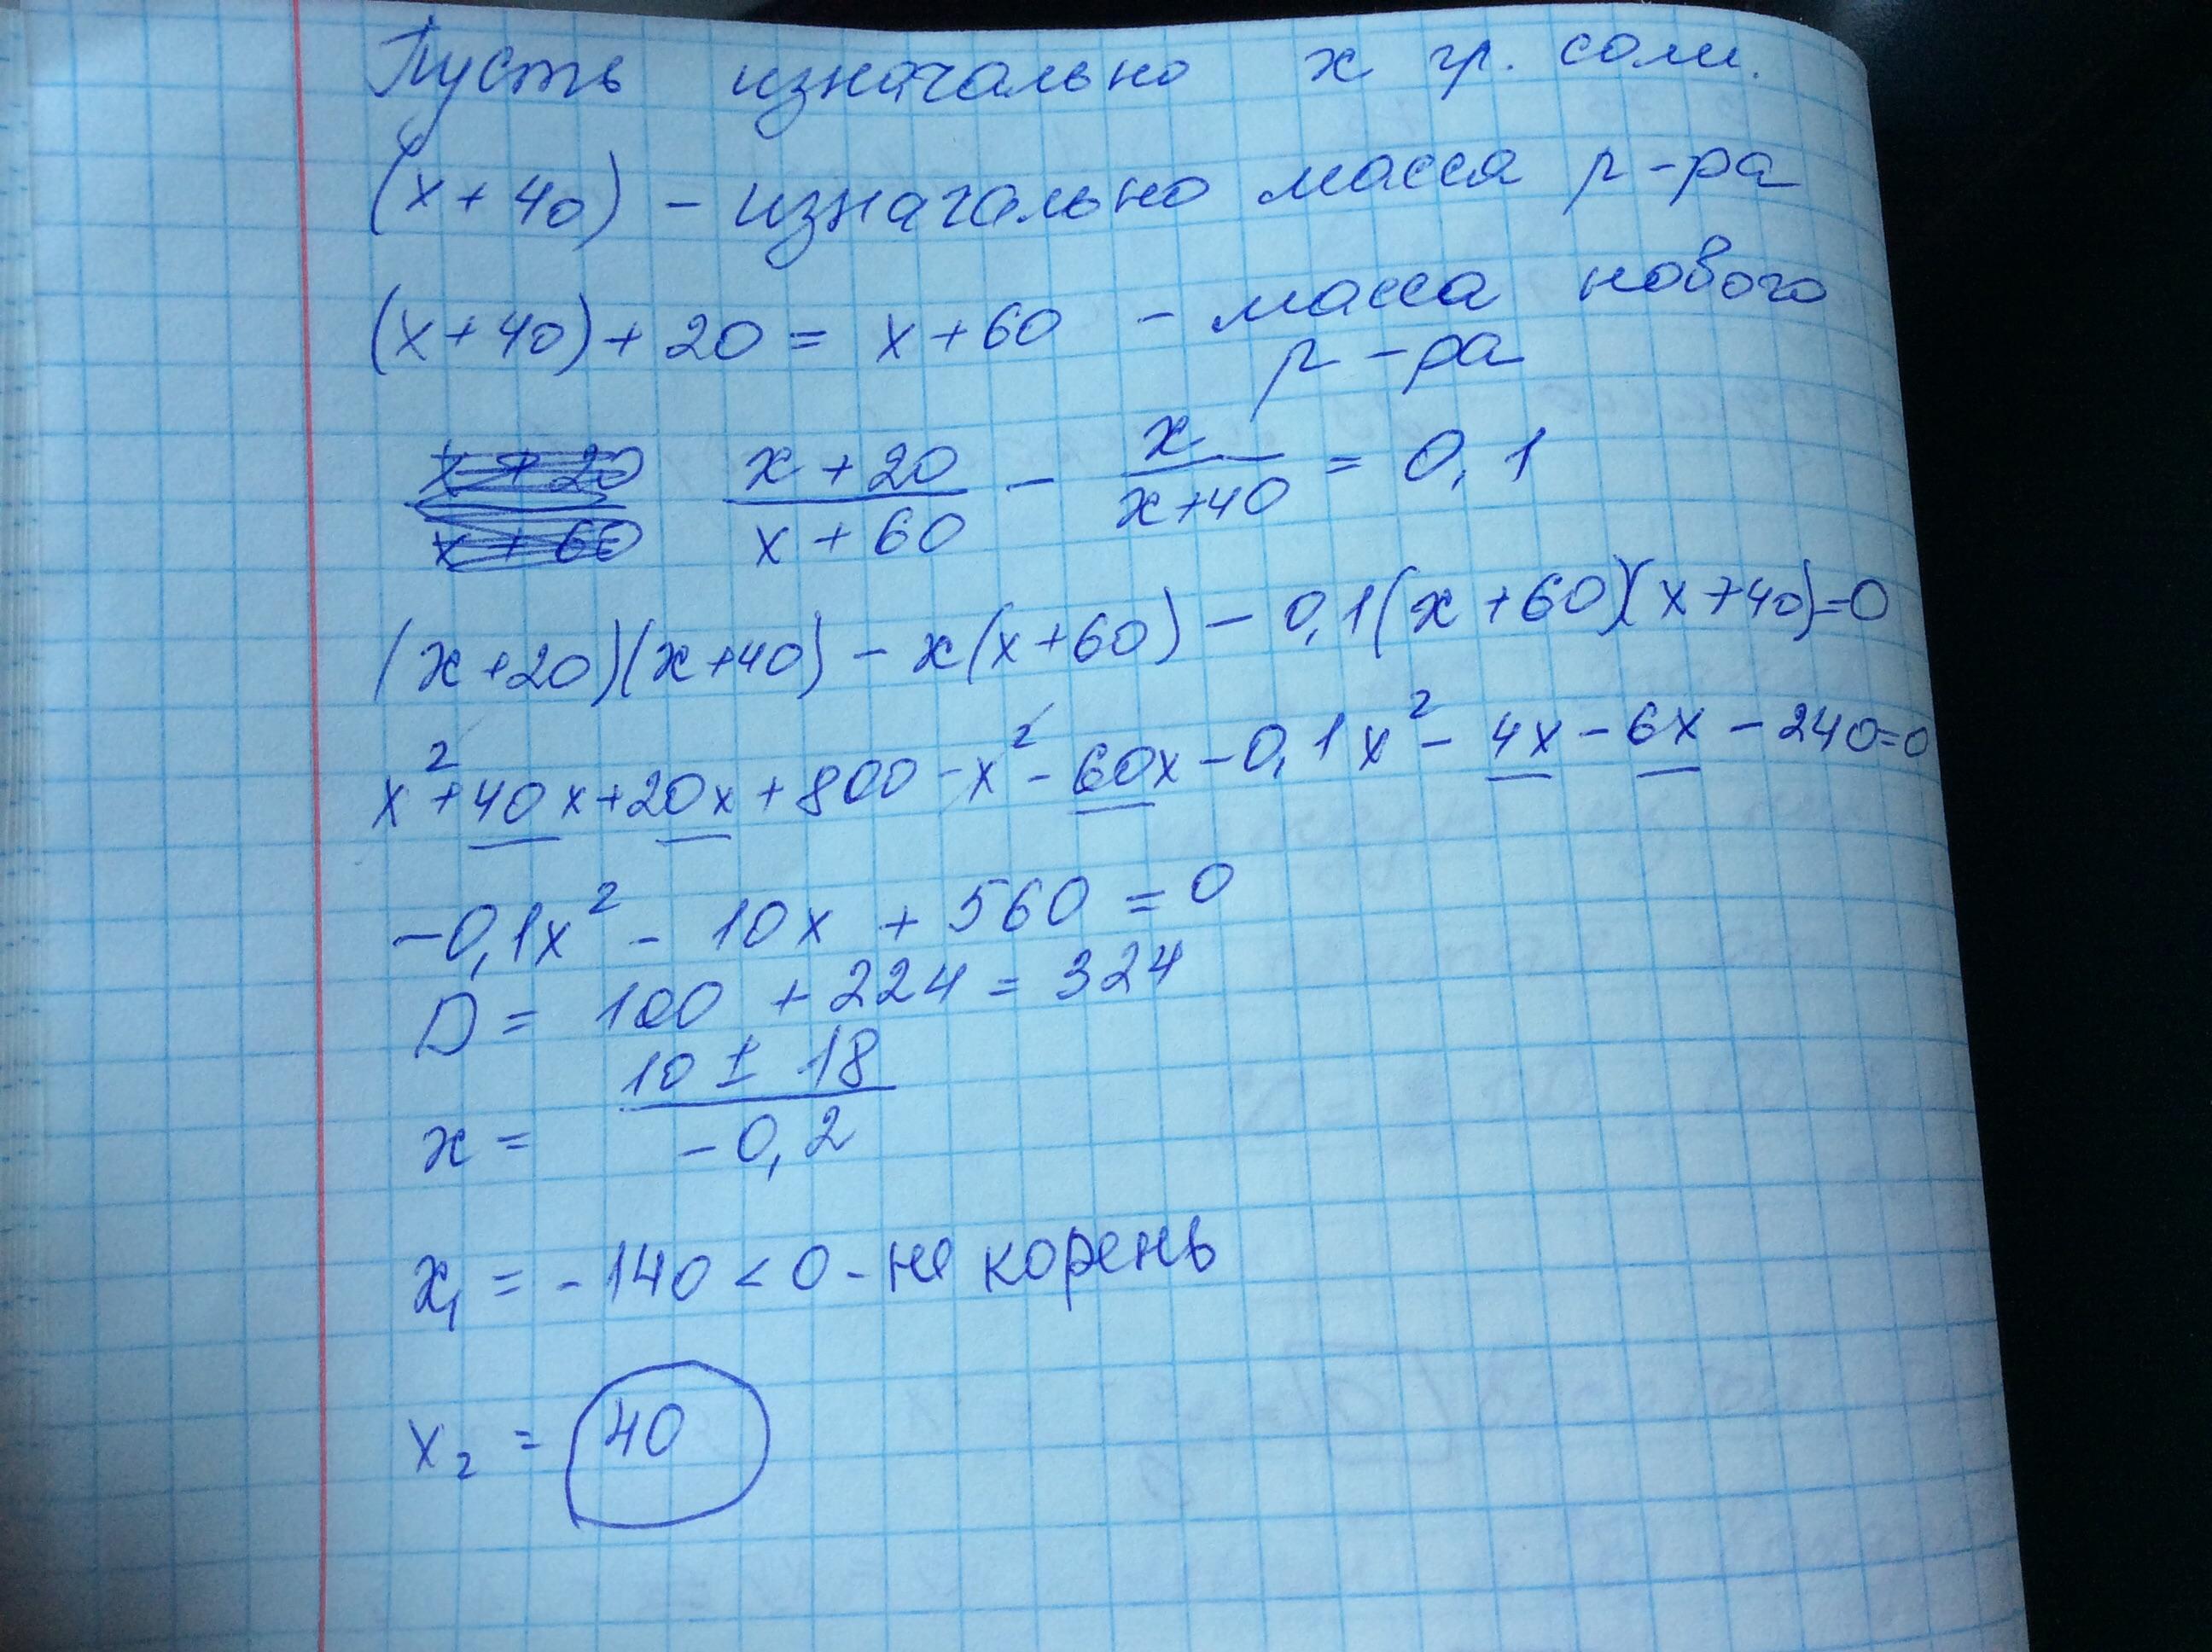 Пусть изначально x гр. соли.
(x+40) – изначально масса р-ра
(x+40)+20 = x+60 – масса нового
р-ра
x+20/x+60 x+20/x+60 – x/x+40 = 0,1
(x+20)(x+40) – x(x+60) – 0,1(x+60)(x+40)=0
x²+40x+20x+800–x²–60x–0,1x²–4x–6x–240=0
–0,1x² – 10x + 560 = 0
D = 100 + 224 = 324
x = 10 ± 18/–0,2
x₁ = –140 < 0 – не корень
x₂ = 40